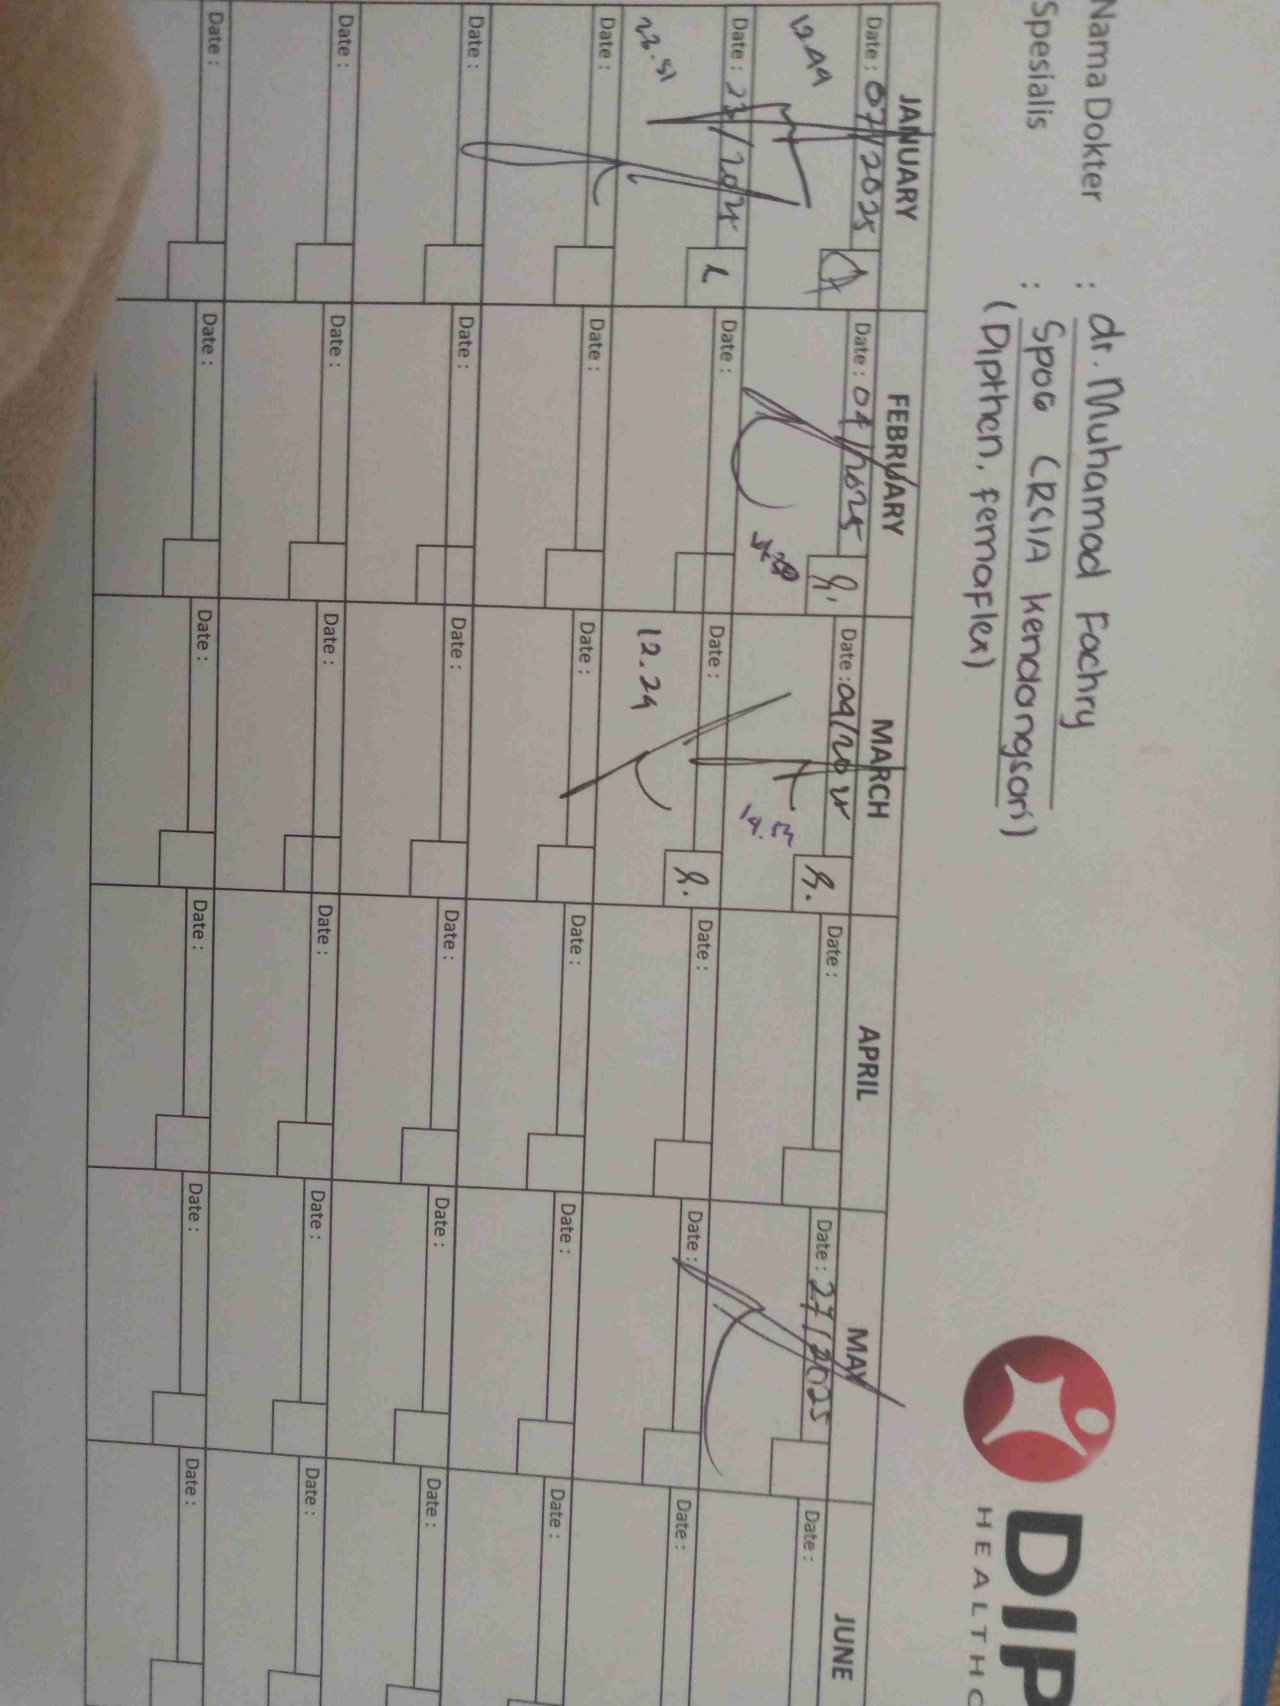 Nama Dokter : dr. Muhamad Fachry
Spesialis : SpOG (RSIA Kendangsari)
(Dipthen, Femaflex)
DIP
HEALTHC
JANUARY FEBRUARY MARCH APRIL MAY JUNE
Date : 07/2025 Date : 04/2025 Date : 04/2025 Date : Date : 27/2025 Date :
12.44 14.53
Date : 23/2025 L Date : Date : Date : Date : Date :
23.51 12.24
Date : Date : Date : Date : Date : Date :
Date : Date : Date : Date : Date : Date :
Date : Date : Date : Date : Date : Date :
Date : Date : Date : Date : Date : Date :